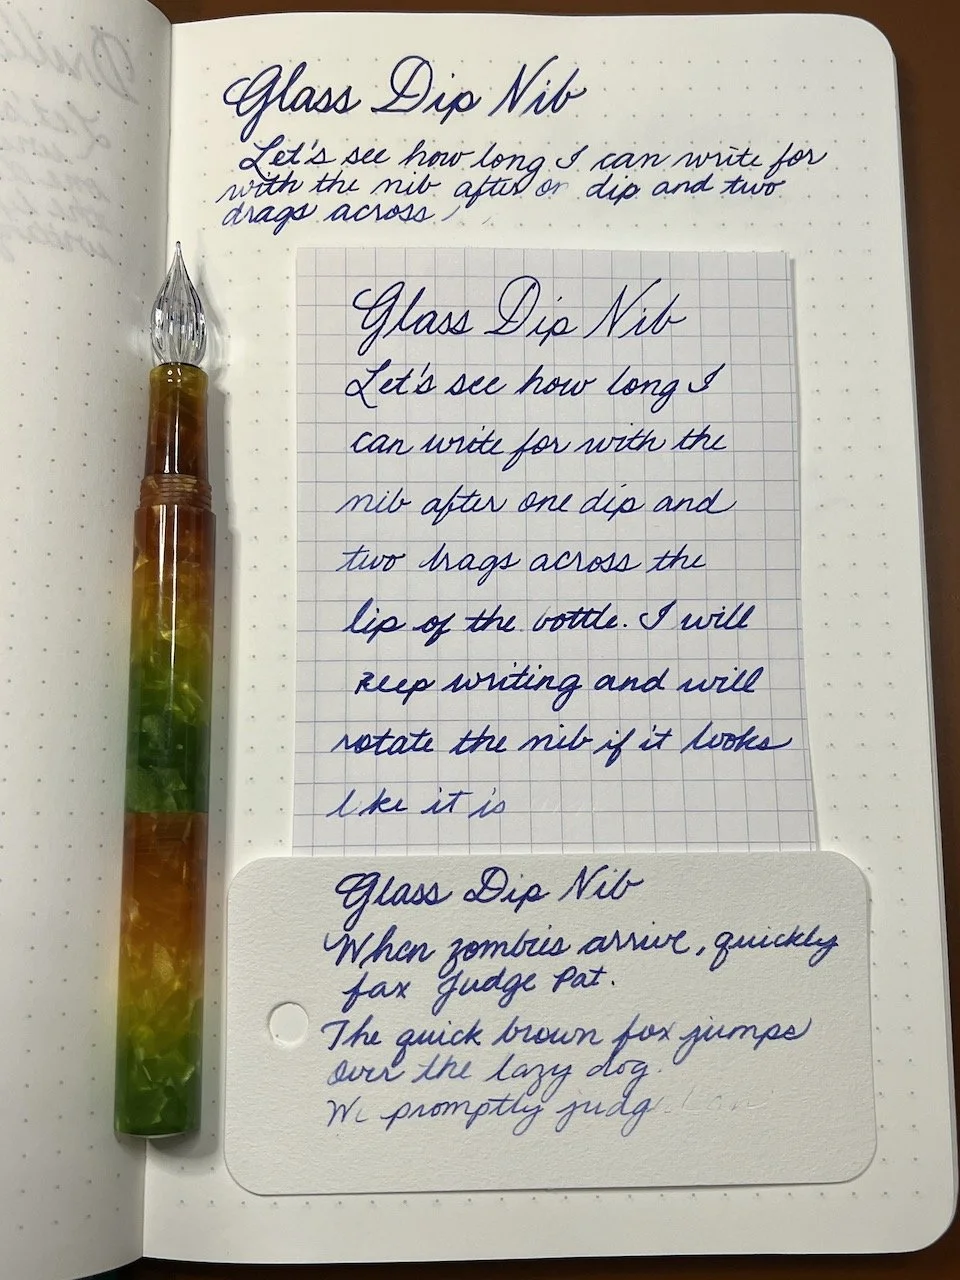 Glass Dip Nib
Let's see how long I can write for
with the nib after on dip and two
drags across
Glass Dip Nib
Let's see how long I
can write for with the
nib after one dip and
two drags across the
lip of the bottle. I will
keep writing and will
rotate the nib if it looks
like it is
Glass Dip Nib
When zombies arrive, quickly
fax Judge Pat.
The quick brown fox jumps
over the lazy dog.
We promptly judg